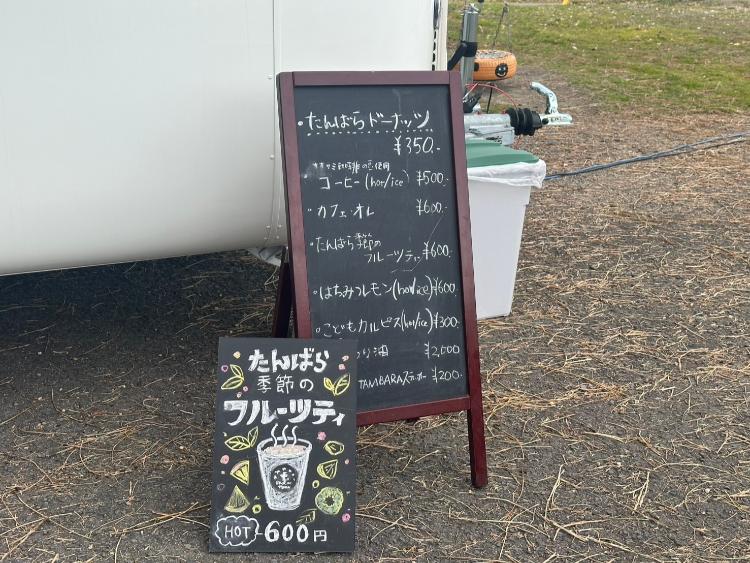 ・たんばらドーナッツ
¥350.-
コーヒー(hot/ice) ¥500.-
・カフェ・オレ ¥600.-
・たんばら季節の
フルーツティ ¥600.-
・はちみつレモン(hot/ice) ¥600.
・こどもカルピス(hot/ice) ¥300.-
油 ¥2,000
TAMBARAステッカー ¥200.-
たんばら
季節の
フルーツティ
HOT -600円